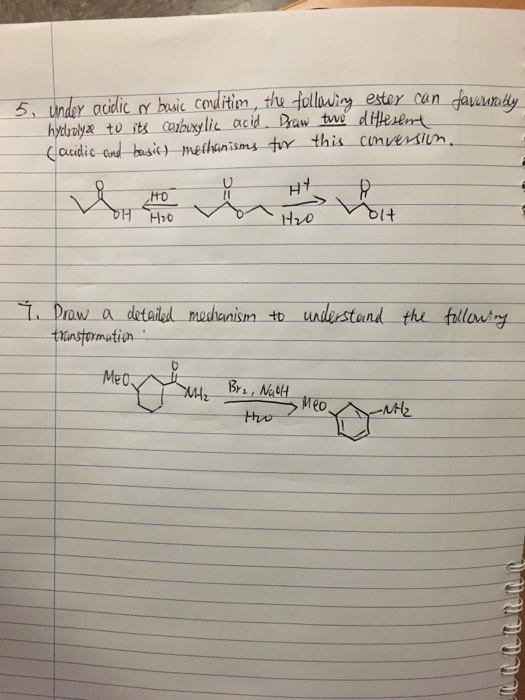 5. Under acidic or basic condition, the following ester can favourably
hydrolyze to its carboxylic acid. Draw two different
(acidic and basic) mechanisms for this conversion.
O
OH
HO⁻
H2O
O
O
H+
H2O
O
OH
7. Draw a detailed mechanism to understand the following
transformation:
MeO
O
NH2
Br2, NaOH
H2O
MeO
NH2